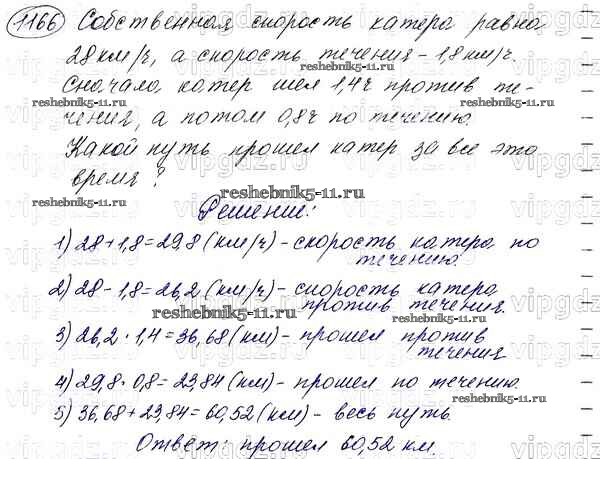 1166 Собственная скорость катера равна
28 км/ч, а скорость течения - 1,8 км/ч.
Сначала катер шел 1,4 ч против те-
reshebnik5-11.ru reshebnik5-11.ru
чения, а потом 0,8 ч по течению.
Какой путь прошел катер за все это
время?
reshebnik5-11.ru
Решение:
1) 28 + 1,8 = 29,8 (км/ч) - скорость катера по
течению.
2) 28 - 1,8 = 26,2 (км/ч) - скорость катера
против течения.
reshebnik5-11.ru reshebnik5-11.ru
3) 26,2 · 1,4 = 36,68 (км) - прошел против
течения
4) 29,8 · 0,8 = 23,84 (км) - прошел по течению.
reshebnik5-11.ru
5) 36,68 + 23,84 = 60,52 (км) - весь путь.
Ответ: прошел 60,52 км.